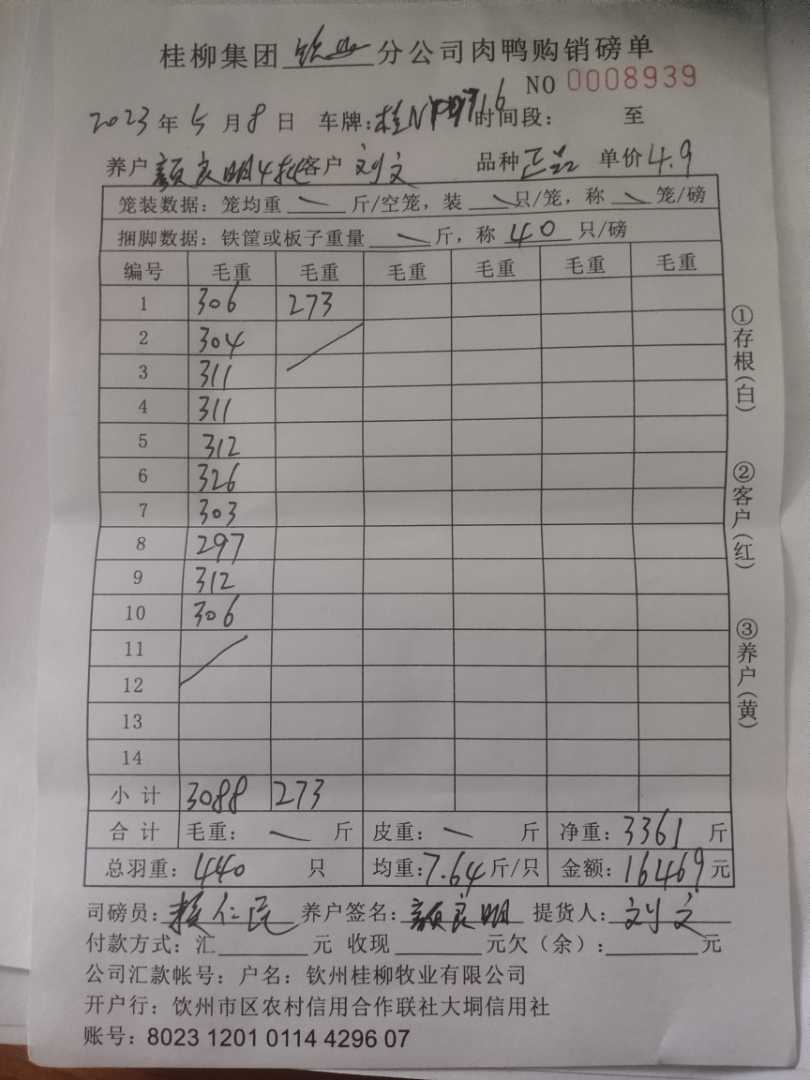 桂柳集团 钦州 分公司肉鸭购销磅单
NO 0008939
2023 年 5 月 8 日 车牌: 时间段: 至
养户 颜良明4批 客户 刘文 品种 正品 单价 4.9
笼装数据: 笼均重 斤/空笼, 装 只/笼, 称 笼/磅
捆脚数据: 铁筐或板子重量 斤, 称 40 只/磅
编号 毛重 毛重 毛重 毛重 毛重 毛重
1 306 273
2 304
3 311
4 311
5 312
6 326
7 303
8 297
9 312
10 306
11
12
13
14
小计 3088 273
合计 毛重: 斤 皮重: 斤 净重: 3361 斤
总羽重: 440 只 均重: 7.64 斤/只 金额: 16469 元
司磅员: 养户签名: 颜良明 提货人: 刘文
付款方式: 汇 元 收现 元欠(余): 元
公司汇款帐号: 户名: 钦州桂柳牧业有限公司
开户行: 饮州市区农村信用合作联社大垌信用社
账号: 8023 1201 0114 4296 07
①存根(白)
②客户(红)
③养户(黄)